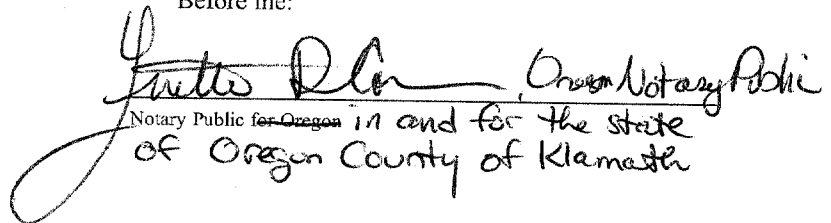 Before me:
Oregon Notary Public
Notary Public for Oregon in and for the state
of Oregon County of Klamath